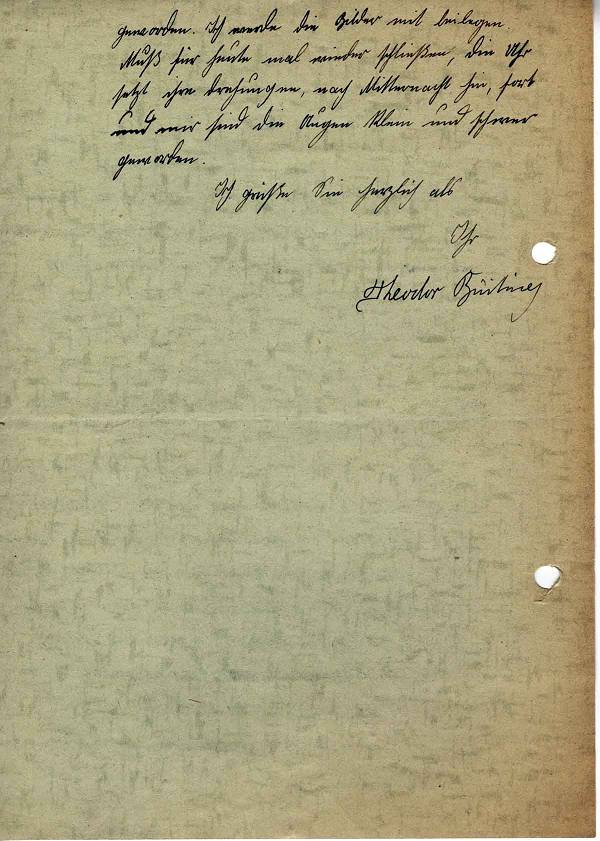 geworden. Ich werde die Bilder mit beilegen.
Muß für heute mal wieder schließen, die Uhr
setzt ihre Drehungen, nach Mitternacht hin, fort
und mir sind die Augen klein und schwer
geworden.
Ich grüße Sie herzlich als
Ihr
Theodor